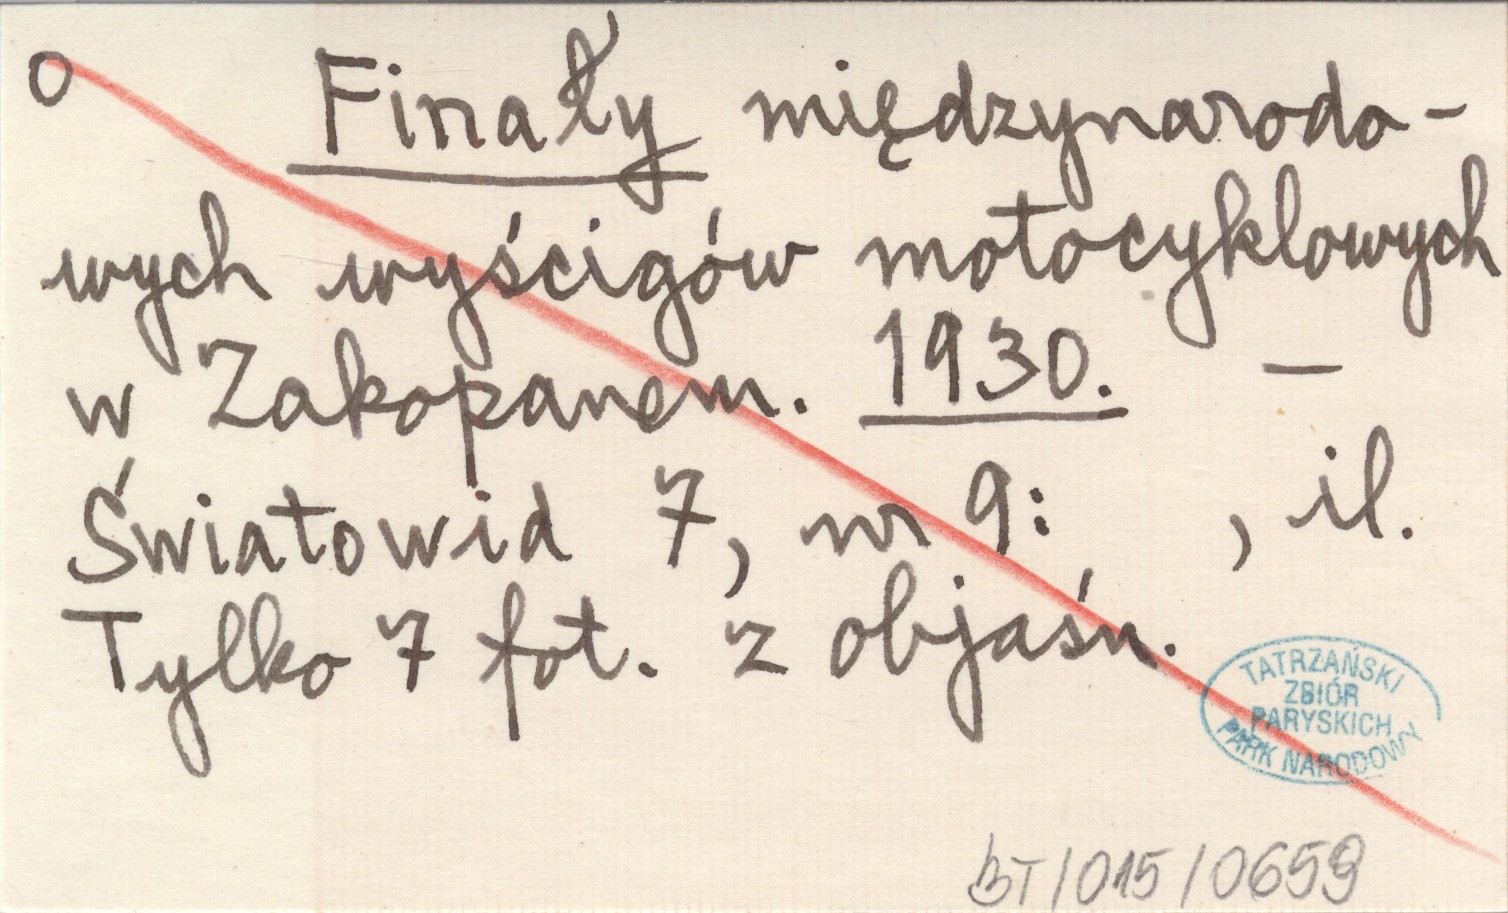 o Finały międzynarodo-
wych wyścigów motocyklowych
w Zakopanem. 1930. —
Światowid 7, nr 9: , il.
Tylko 7 fot. z objaśn.
TATRZAŃSKI
ZBIÓR
PARYSKICH
PARK NARODOWY
BT/015/0659